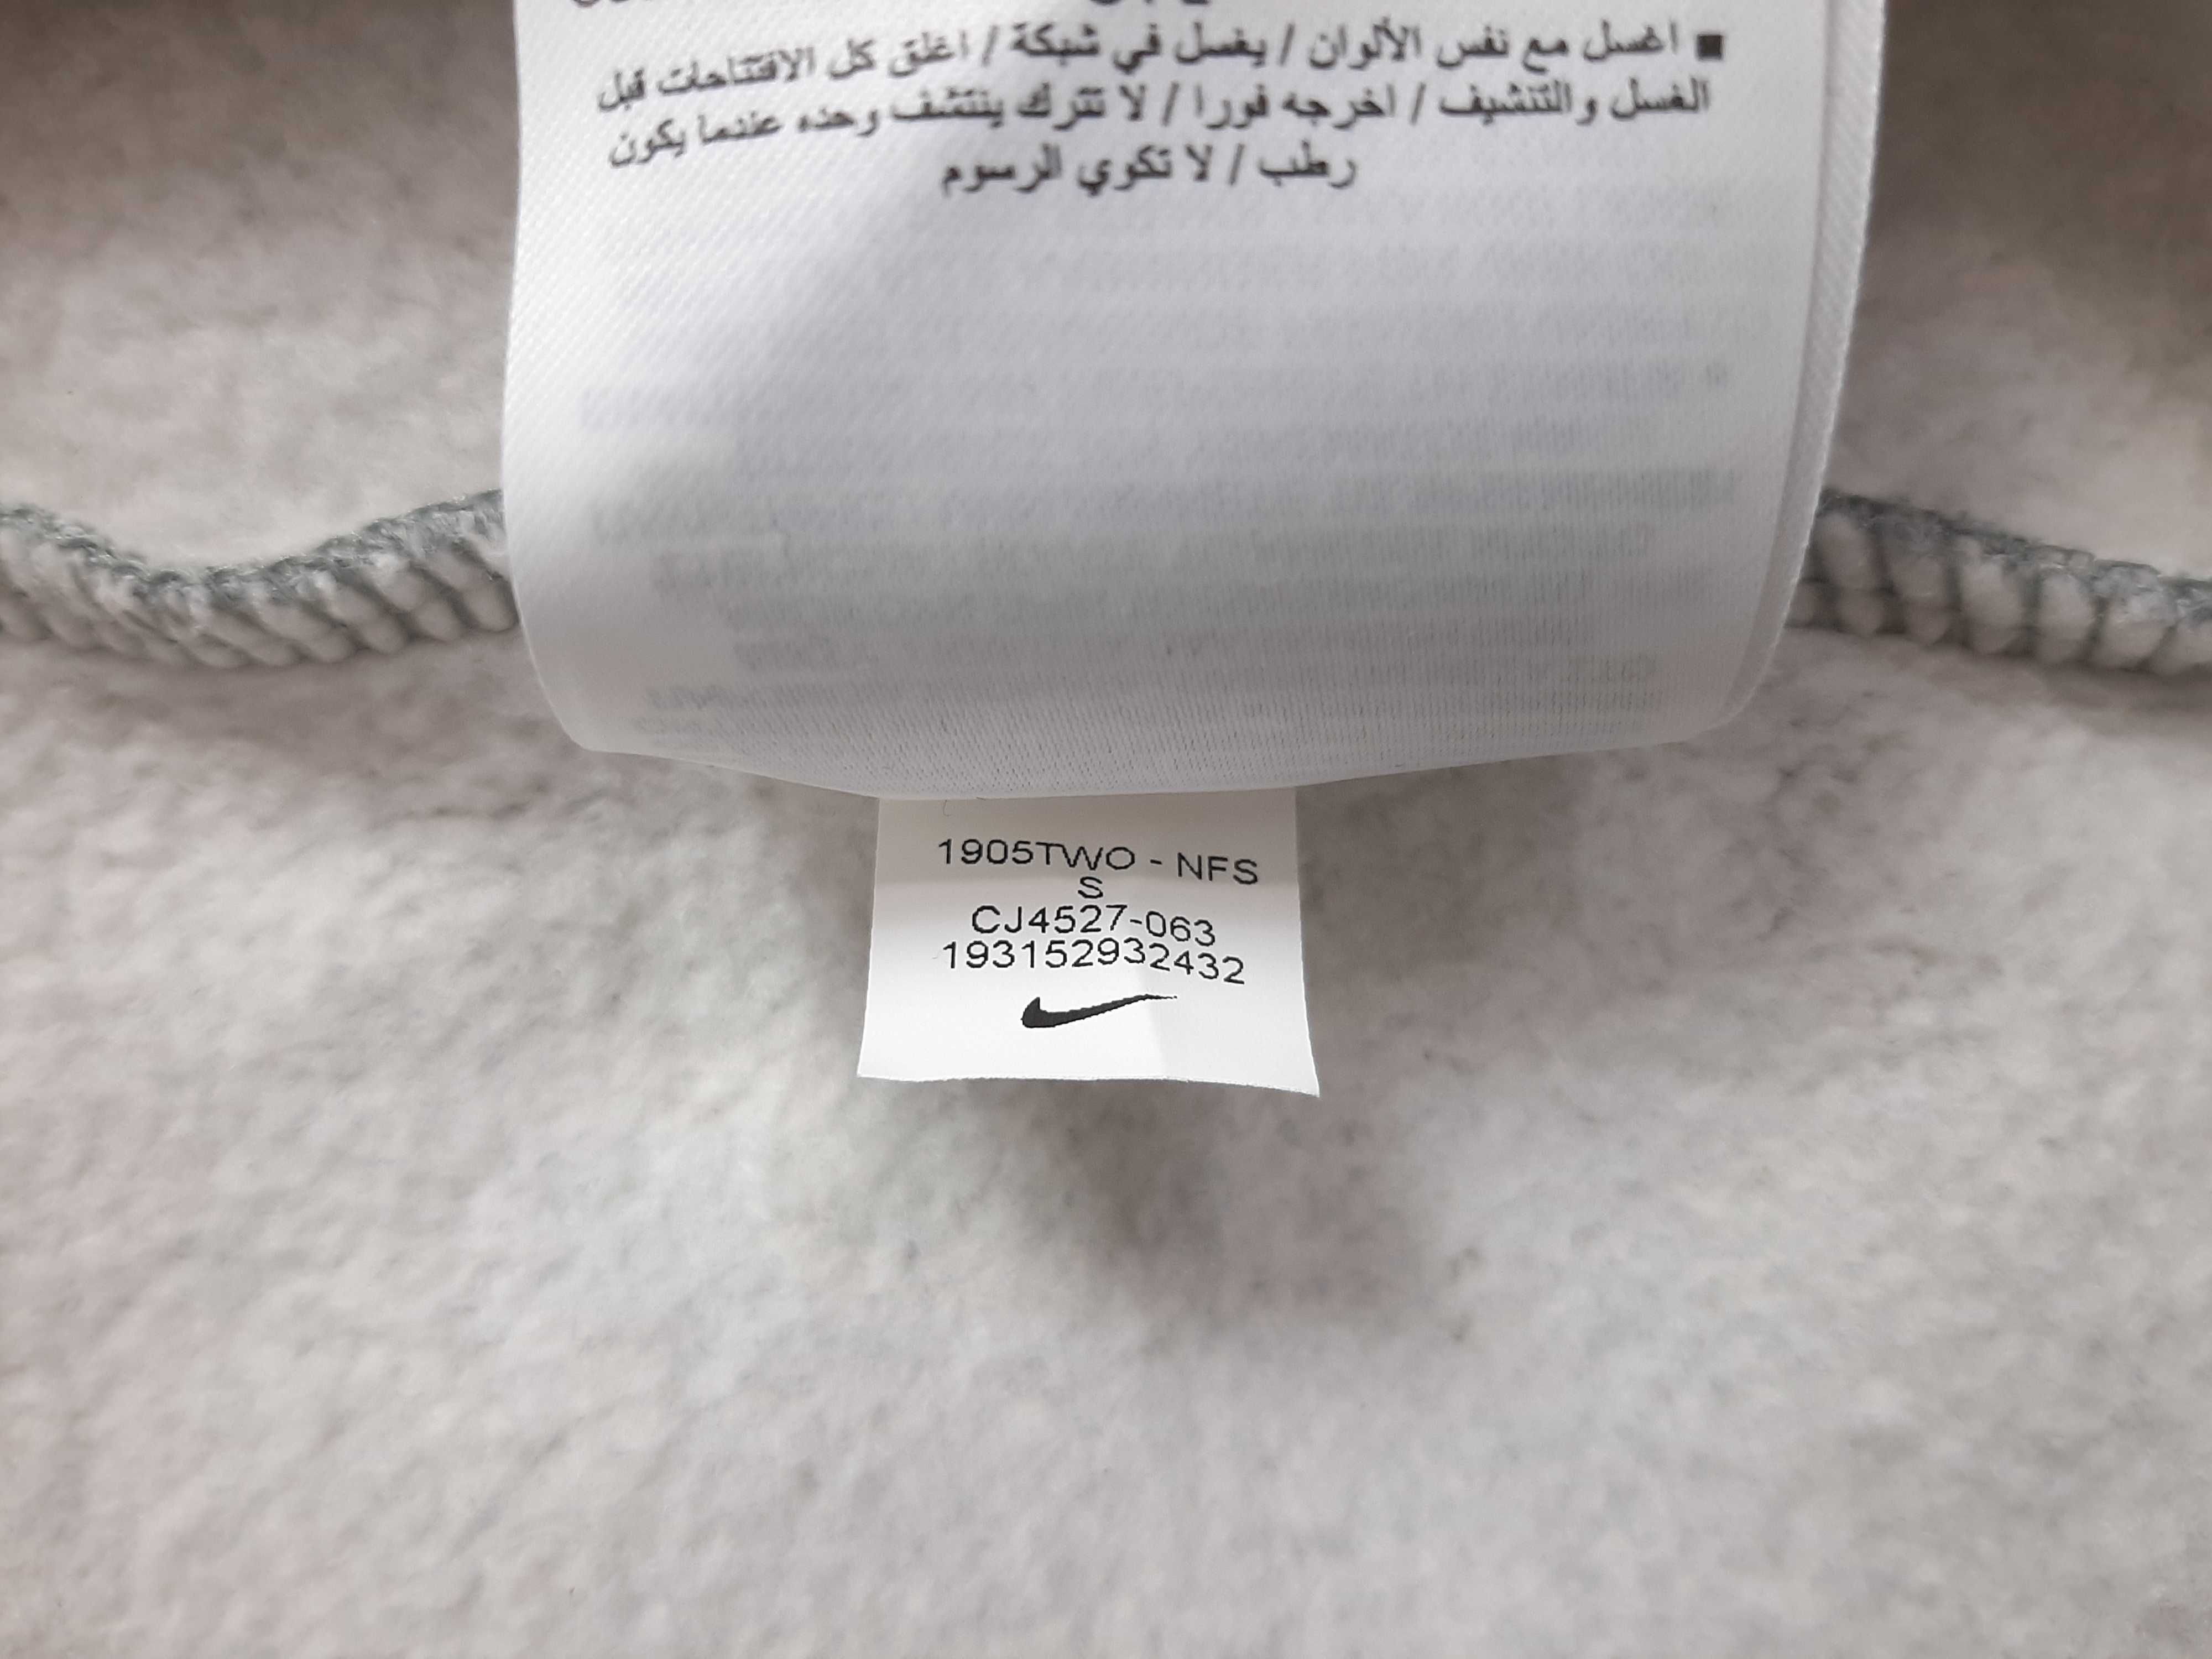 ■ اغسل مع نفس الألوان / يغسل في شبكة / اغلق كل الافتتاحات قبل
الغسل والتنشيف / اخرجه فورا / لا تترك ينتشف وحده عندما يكون
رطب / لا تكوي الرسوم
1905TWO - NFS
S
CJ4527-063
193152932432